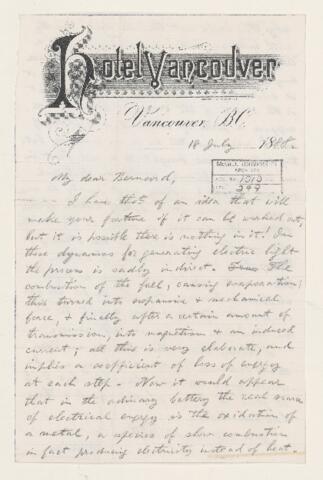 Hotel Vancouver
Vancouver, B.C.
18 July 188
My dear Bernard,
I have tho't of an idea that will
make your fortune if it can be worked out,
but it is possible there is nothing in it! In
these dynamos for generating electric light
the process is sadly indirect. The
combustion of the fuel, causing evaporation;
this turned into expansive & mechanical
force, & finally after a certain amount of
transmission, into magnetism & an induced
current; all this is very elaborate, and
implies a coefficient of loss of energy
at each step. Now it would appear
that in the ordinary battery the real source
of electrical energy is the oxidation of
a metal, a species of slow combustion
in fact producing electricity instead of heat.